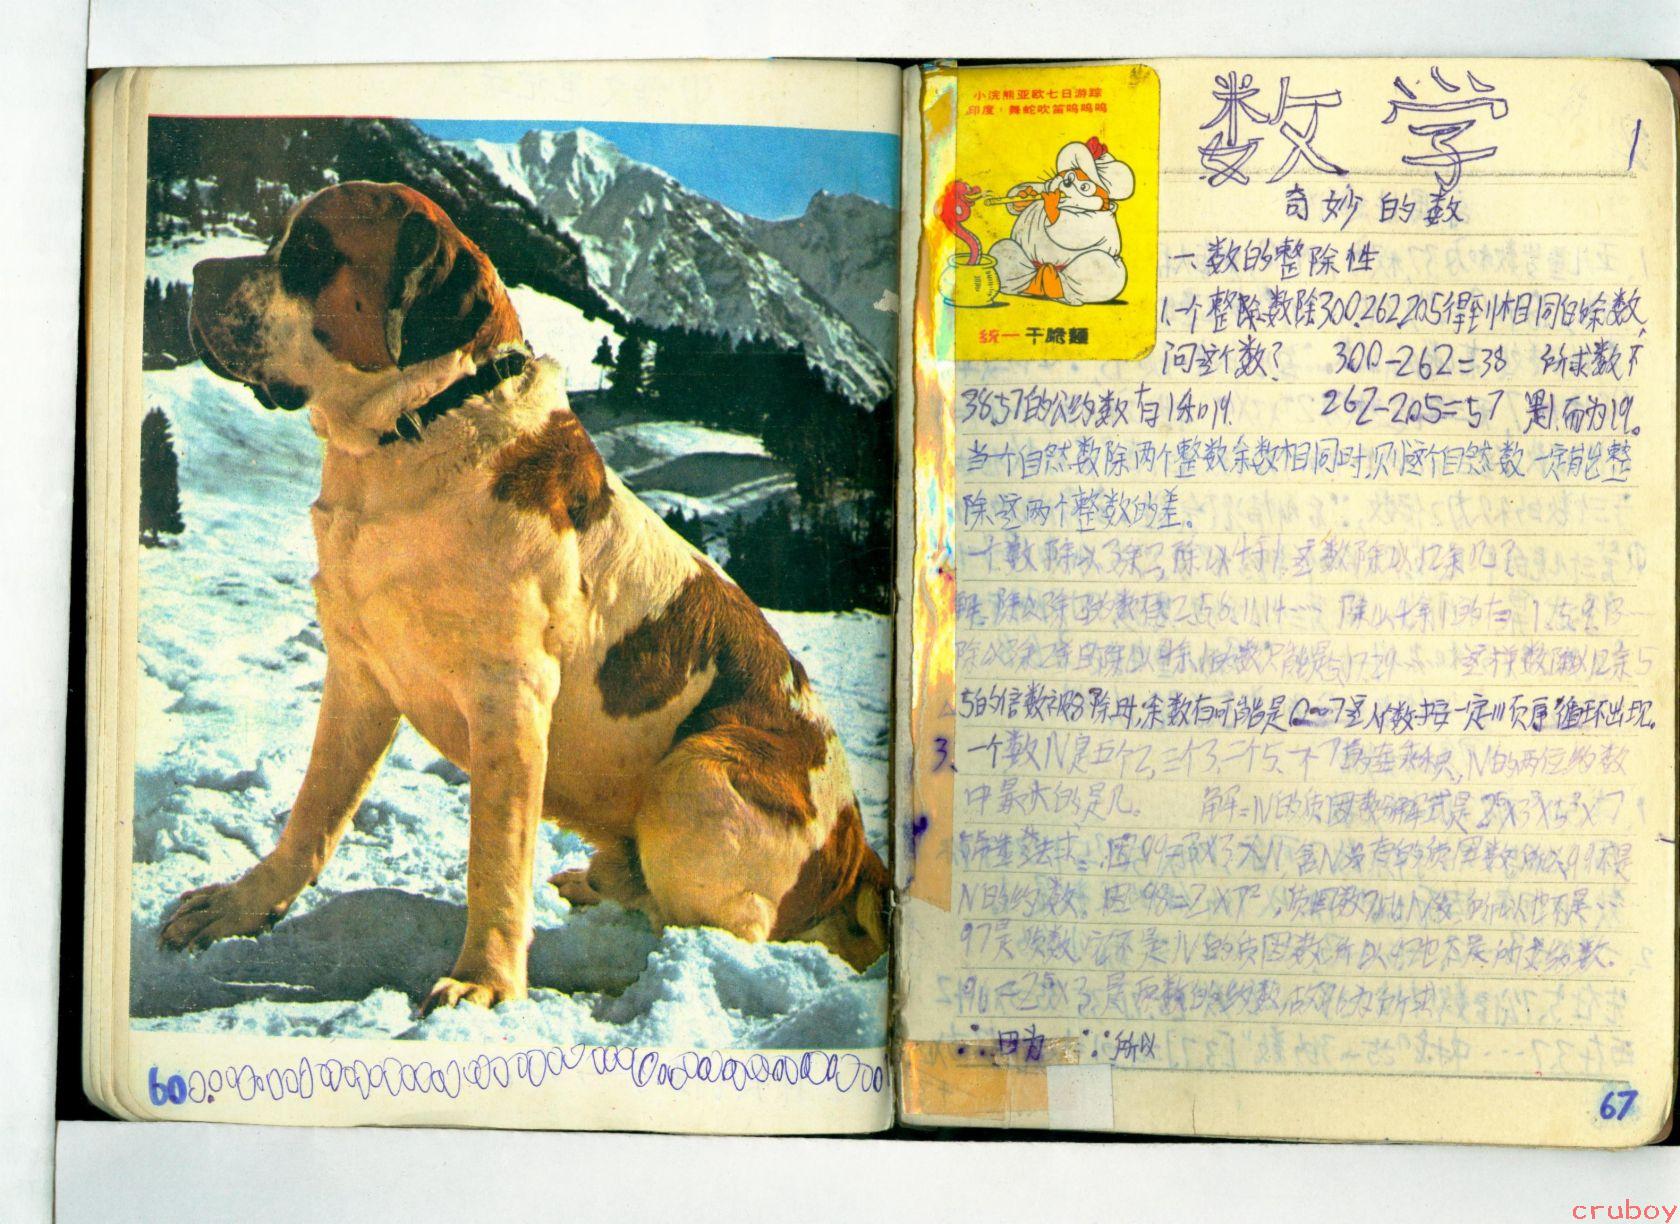 60
小浣熊亚欧七日游踪
印度：舞蛇吹笛呜呜呜
统一 干脆麵
数学
1
奇妙的数
一、数的整除性
1.一个整除数除300.262.205得到相同的余数,
问这个数？ 300-262=38 所求数不
38.57的公约数有1和19. 262-205=57 是1.而为19。
当一个自然数除两个整数余数相同时,则这个自然数一定能整
除这两个整数的差。
一个数除以3余二,除以4余1.这数除以12余几？
除以4余1的有 1.5.9.13……
这样数除以12余5
5的倍数被8除时,余数有可能是0~7这八个数按一定顺序循环出现。
3. 一个数N是五个2,三个3,二个5,一个7的连乘积,N的两位约数
中最大的是几。 解=N的质因数分解式是2⁵×3³×5²×7
N的约数. 因98=2×7²
97是质数,它不是N的质因数,所以97也不是所求约数.
96=2⁵×3,
∵因为 ∴所以
67
cruboy